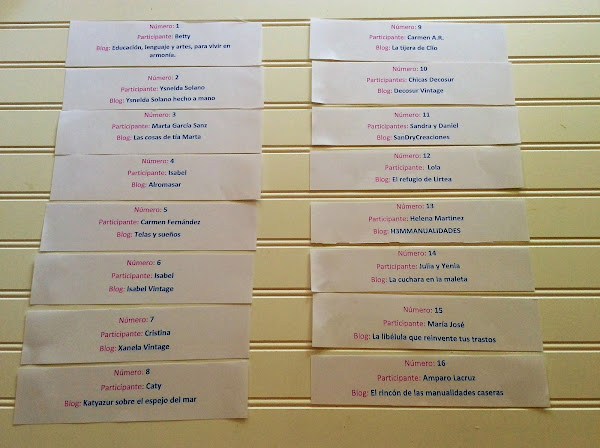 Número: 1
Participante: Betty
Blog: Educación, lenguaje y artes, para vivir en
armonía.
Número: 2
Participante: Ysnelda Solano
Blog: Ysnelda Solano hecho a mano
Número: 3
Participante: Marta García Sanz
Blog: Las cosas de tía Marta
Número: 4
Participante: Isabel
Blog: Abomasar
Número: 5
Participante: Carmen Fernández
Blog: Telas y sueños
Número: 6
Participante: Isabel
Blog: Isabel Vintage
Número: 7
Participante: Cristina
Blog: Xanela Vintage
Número: 8
Participante: Caty
Blog: Katyazur sobre el espejo del mar
Número: 9
Participante: Carmen A.R.
Blog: La tijera de Clío
Número: 10
Participantes: Chicas Decosur
Blog: Decosur Vintage
Número: 11
Participantes: Sandra y Daniel
Blog: SanDryCreaciones
Número: 12
Participante: Lola
Blog: El refugio de Urtea
Número: 13
Participante: Helena Martínez
Blog: H3MMANUALIDADES
Número: 14
Participante: Julia y Yenia
Blog: La cuchara en la maleta
Número: 15
Participante: María José
Blog: La libélula que reinvente tus trastos
Número: 16
Participante: Amparo Lacruz
Blog: El rincón de las manualidades caseras